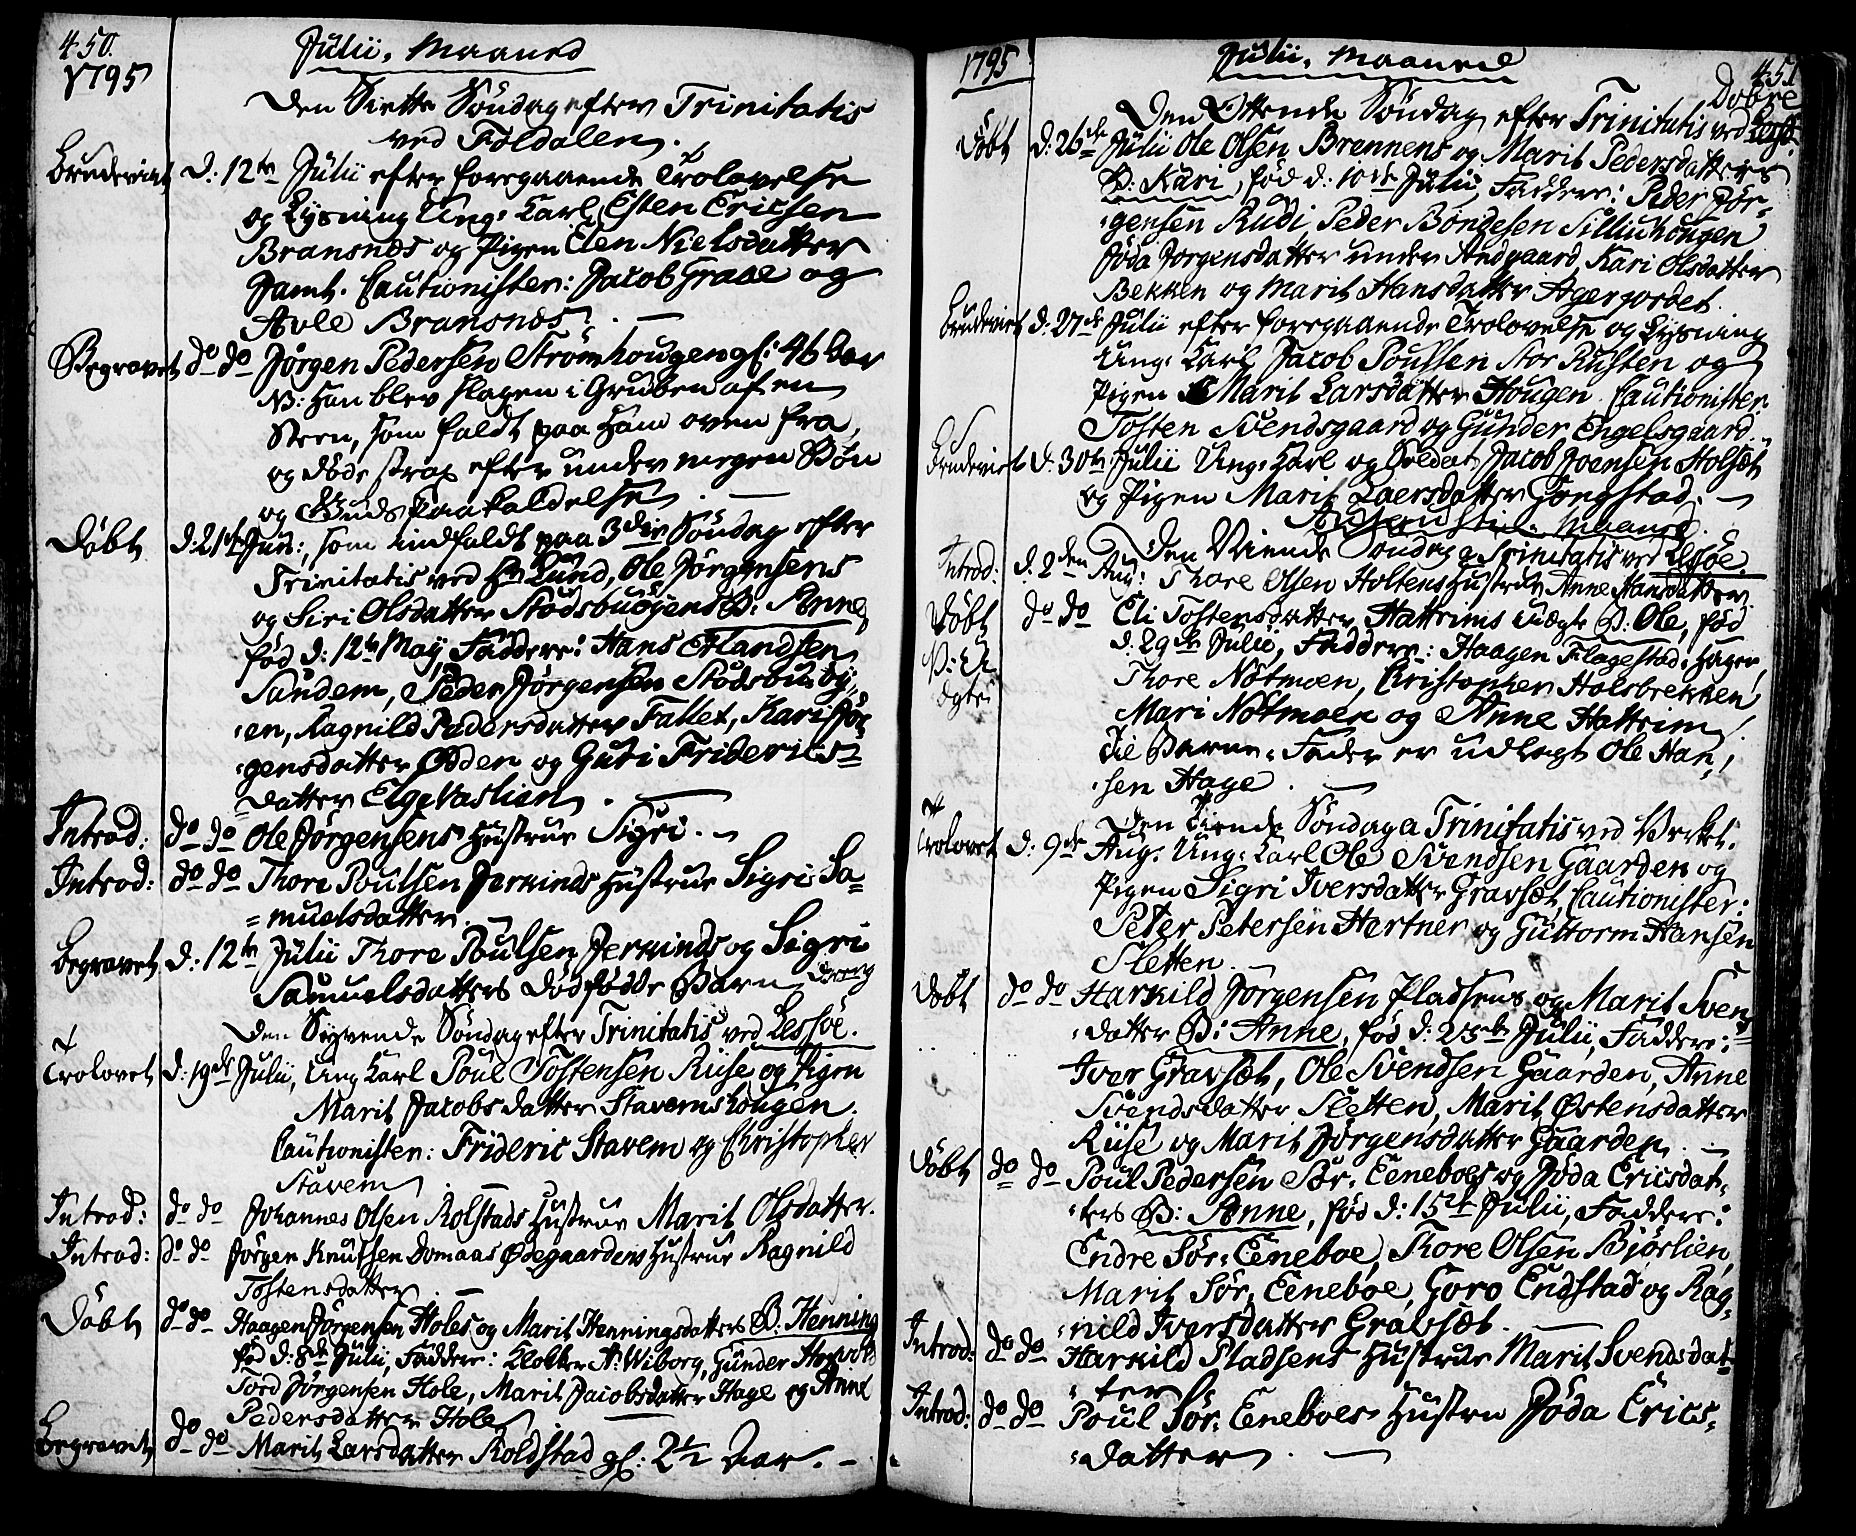 450.
1795
Julii. Maaned
Den Siette Søndag efter Trinitatis
ved Foldalen.
Brudeviet d: 12te Julii efter foregaaende Trolovelse
og Lysning Ung: Karl Esten Ericsen
Bransnæs og Pigen Elen Nielsdatter
Jamt. Cautionister: Jacob Graae og
Avle Bransnæs.
Begravet do do Jørgen Pedersen Strømhougen gl: 46 Aar
N: Han blev slagen i Gruben af en
Steen, som faldt paa Ham oven fra,
og døde strax efter under megen Bøn
og Guds paakaldelse.
Døbt d: 21de Jun:, som indfaldt paa 3die Søndag efter
Trinitatis ved Hr Lund, Ole Jørgensens
og Siri Olsdatter Stødsbuøjens B: Anne
fød d: 12te May, Faddere: Hans Erlandsen
Sandem, Peder Jørgensen Stødsbuøy-
-en, Ragnild Pedersdatter Fallet, Kari Jør-
-gensdatter Odden og Guri Friderics-
datter Elgevaslien.
Introd: do do Ole Jørgensens Hustrue Sigri.
Introd: do do Thore Poulsen Jerkinds Hustrue Sigri Sa-
=muelsdatter.
Begravet d: 12te Julii Thore Poulsen Jerkinds og Sigri
Samuelsdatters Dødfødde Barn Dreng
Den Syvende Søndag efter Trinitatis ved Lessøe.
Trolovet d: 19de Julii, Ung Karl Poul Tostensen Riise og Pigen
Marit Jacobsdatter Stavemshougen.
Cautionister: Frideric Stavem og Christopher
Stavem.
Introd: do do Johannes Olsen Rolstads Hustrue Marit Olsdatter.
Introd: do do Jørgen Knutsen Domaas Ødegaardens Hustrue Ragnild
Tostensdatter.
Døbt do do Haagen Jørgensen Holes og Marit Henningsdatters B: Henning
fød d: 8de Julii, Faddere: Klokker A: Wiborg, Gunder
Tord Jørgensen Hole, Marit Jacobsdatter Hage og Anne
Pedersdatter Hole.
Begravet do do Marit Larsdatter Roldstad gl: 2½ Aar.
1795
Julii. Maaned
451
Dovre
Den Ottende Søndag efter Trinitatis ved Lessø.
Døbt d: 26de Julii Ole Olsen Brennens og Marit Pedersdatters
B: Kari, fød d: 10de Julii, Faddere: Peder Jør-
-gensen Rudi, Peder Bøndesen Silliuhougen
Jøda Jorgensdatter under Andgaard, Kari Olsdatter
Bekken og Marit Hansdatter Agerjordet.
Brudeviet d: 27de Julii efter foregaaende Trolovelse og Lysning
Ung: Karl Jacob Poulsen Stor Rusten og
Pigen Marit Larsdatter Hougen. Cautionister
Tosten Svendsgaard og Gunder Engelsgaard.
Brudeviet d: 30te Julii Ung: Karl og Soldat Jacob Joensen Holsæt
og Pigen Marit Laersdatter Gongstad.
Augusti. Maaned.
Den Niende Søndag a Trinitatis ved Lessøe.
Introd: d: 2den Aug: Thore Olsen Holtens Hustrue Anne Hansdatter.
Døbt do do Eli Tostensdatter Hattrims uægte B: Ole, fød
N: U-
ægte
d. 29de Julii, Faddere: Haagen Flagestad: Hagen
Thore Nøtmoen, Christopher Holsbrekken
Mari Nøtmoen og Anne Hattrim.
Til Barne-Fader er udlagt Ole Han-
-sen Hage.
Den Tiende Søndag a Trinitatis ved Verket.
Trolovet d: 9de Aug: Ung: Karl Ole Svendsen Gaarden og
Pigen Sigri Iversdatter Gravsæt, Cautionister:
Peter Petersen Hertner og Guttorm Hansen
Sletten.
Døbt do do Harkild Jørgensen Pladsens og Marit Sven-
-datter B: Anne, fød d: 25de Julii, Faddere:
Iver Gravsæt, Ole Svendsen Gaarden, Anne
Svendsdatter Sletten, Marit Østensdatter
Riise og Marit Jørgensdatter Gaarden.
Døbt do do Poul Pedersen Sør-Eeneboes og Jøda Ericsdat-
-ters B: Anne, fød d: 15de Julii, Faddere:
Endre Sør-Eeneboe, Thore Olsen Bjørlien,
Marit Sør-Eeneboe, Goro Endstad og Rag-
-nild Iversdatter Gravsæt.
Introd: do do Harkild Pladsens Hustrue Marit Svendsdat-
-ter
Introd: do do Poul Sør-Eeneboes Hustru Jøda Erics-
-datter.